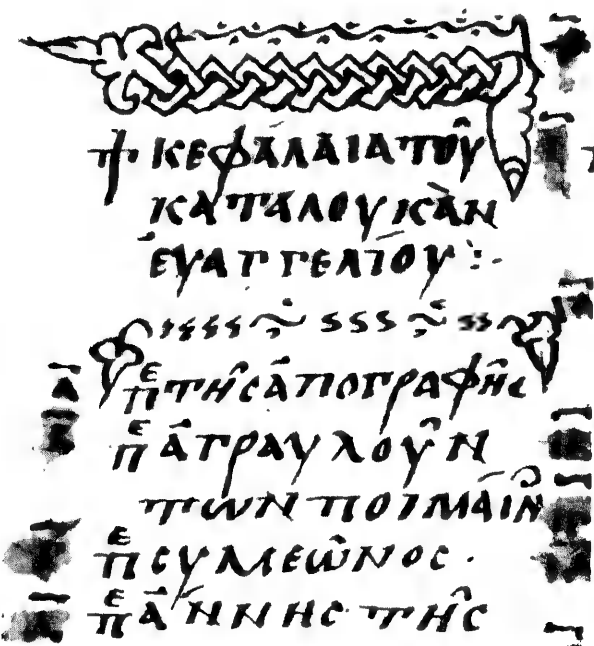 † κεφάλαια τοῦ
κατὰ λουκὰν
ἐυαγγελίου :-
Α πε τῆς ἀπογραφῆς
πε ἀγραυλούν
των ποιμαίν
πε συμεῶνος.
πε ἄννης τῆς